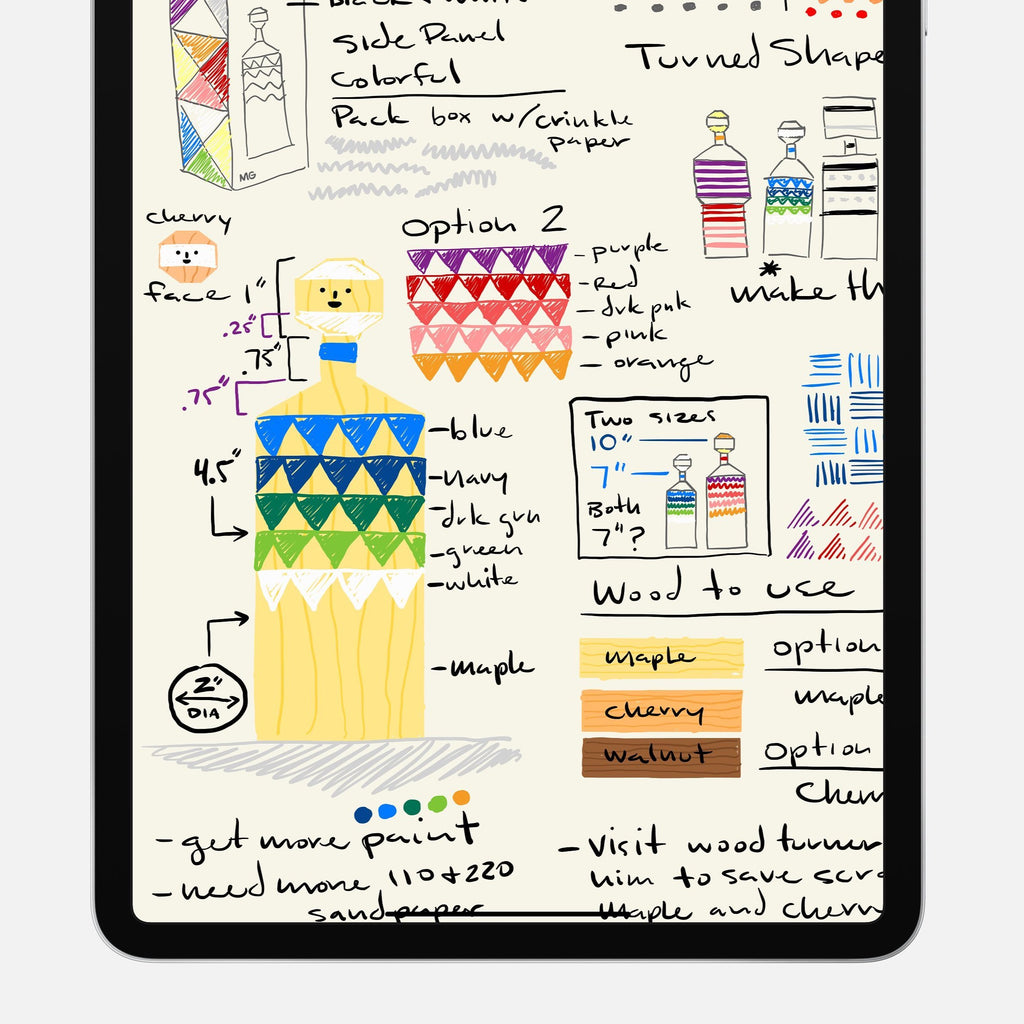 Side Panel
Colorful
Pack box w/crinkle
paper
MG
Turned Shape
cherry
face
Option 2
purple
Red
drk pnk
pink
orange
make th
1"
.25"
.75"
.75"
4.5"
2"
DIA
blue
navy
drk grn
green
white
maple
Two sizes
10"
7"
Both
7"?
Wood to use
maple
cherry
walnut
option
maple
option
Cherr
- get more paint
- need more 110 + 220
sandpaper
- Visit wood turner
him to save scra
maple and cherr